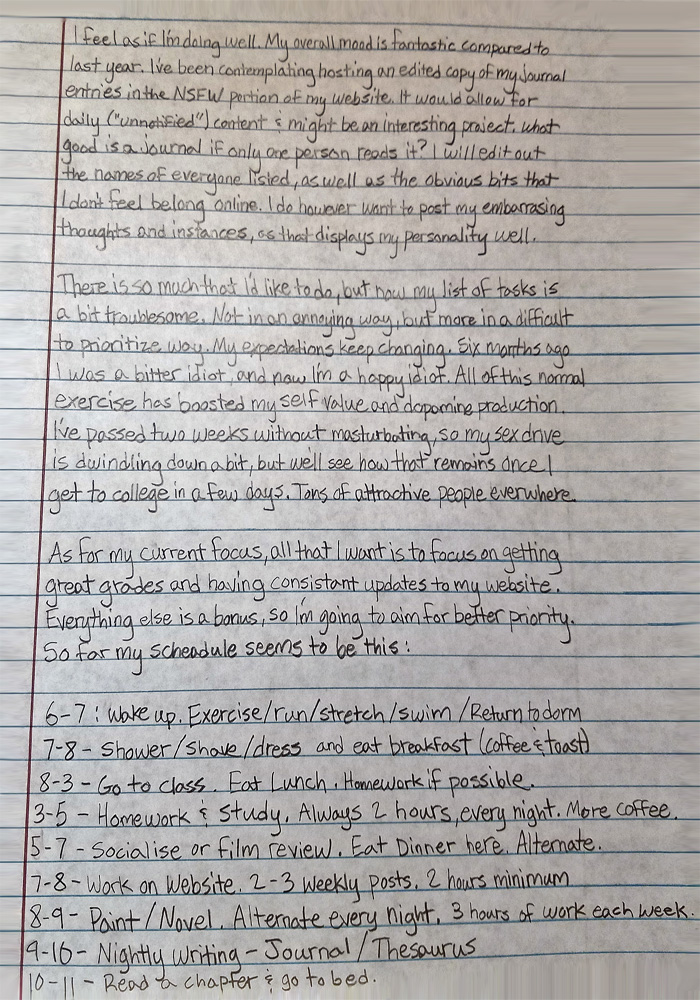 I feel as if I'm doing well. My overall mood is fantastic compared to
last year. I've been contemplating hosting an edited copy of my journal
entries in the NSFW portion of my website. It would allow for
daily ("unnotified") content & might be an interesting project. What
good is a journal if only one person reads it? I will edit out
the names of everyone listed, as well as the obvious bits that
I don't feel belong online. I do however want to post my embarrasing
thoughts and instances, as that displays my personality well.
There is so much that I'd like to do, but now my list of tasks is
a bit troublesome. Not in an annoying way, but more in a difficult
to prioritize way. My expectations keep changing. Six months ago
I was a bitter idiot, and now I'm a happy idiot. All of this normal
exercise has boosted my self value and dopamine production.
I've passed two weeks without masturbating, so my sex drive
is dwindling down a bit, but we'll see how that remains once I
get to college in a few days. Tons of attractive people everwhere.
As for my current focus, all that I want is to focus on getting
great grades and having consistant updates to my website.
Everything else is a bonus, so I'm going to aim for better priority.
So far my scheadule seems to be this:
6-7: Wake up. Exercise/run/stretch/swim/Return to dorm
7-8 - Shower/Shave/dress and eat breakfast (coffee & toast)
8-3 - Go to class. Eat Lunch. Homework if possible.
3-5 - Homework & Study. Always 2 hours, every night. More coffee.
5-7 - Socialise or film review. Eat Dinner here. Alternate.
7-8 - Work on Website. 2-3 weekly posts. 2 hours minimum
8-9 - Paint/Novel. Alternate every night. 3 hours of work each week.
9-10 - Nightly Writing - Journal/Thesaurus
10-11 - Read a chapter & go to bed.